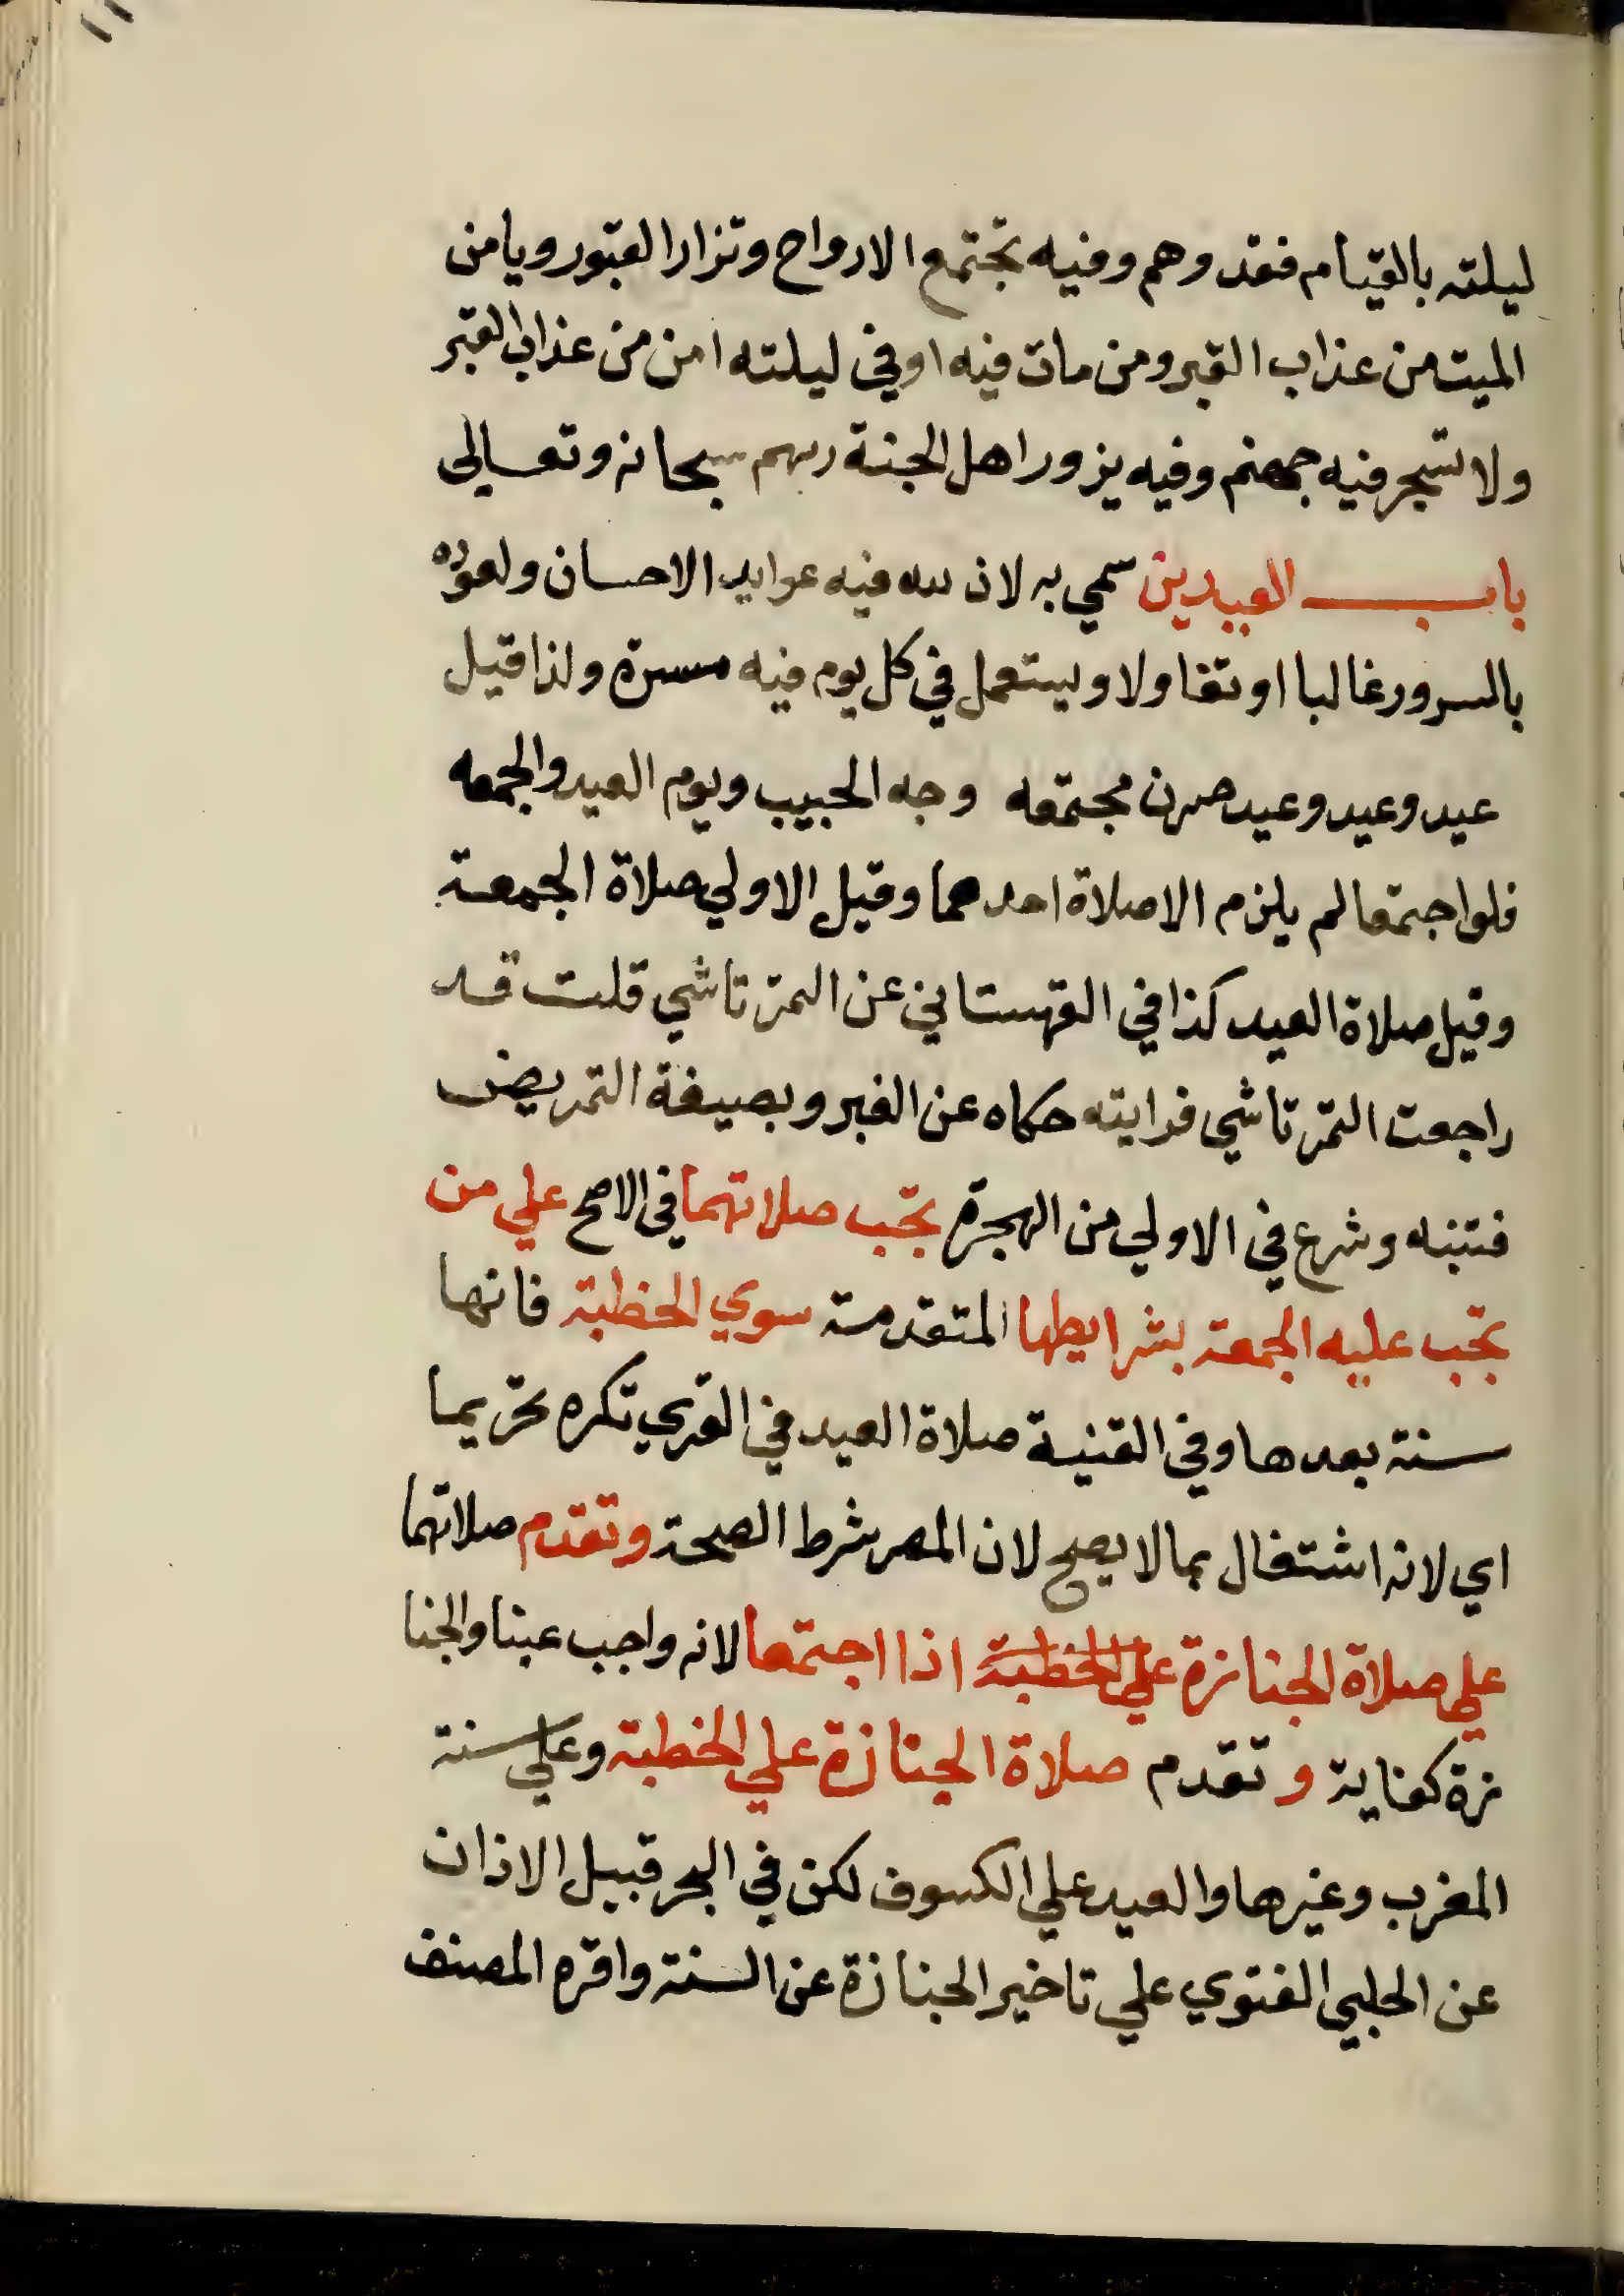 ليلته بالقيام فقد وهم وفيه تجتمع الارواح وتزار القبور ويامن
الميت من عذاب القبر ومن مات فيه او في ليلته امن من عذاب القبر
ولا تسجر فيه جهنم وفيه يزور اهل الجنة ربهم سبحانه وتعالى
باب العيدين سمي به لان لله فيه عوايد الاحسان ولعوده
بالسرور غالبا او تفاولا ويستعمل في كل يوم فيه مسرة ولذا قيل
عيد وعيد وعيد صرن مجتمعه وجه الحبيب ويوم العيد والجمعه
فلو اجتمعا لم يلزم الا صلاة احدهما وقيل الاولي صلاة الجمعة
وقيل صلاة العيد كذا في القهستاني عن التمرتاشي قلت قد
راجعت التمرتاشي فرايته حكاه عن الغير وبصيغة التمريض
فتنبه وشرع في الاولي من الهجرة تجب صلاتهما في الاصح علي من
تجب عليه الجمعة بشرايطها المتقدمة سوي الخطبة فانها
سنة بعدها وفي القنية صلاة العيد في القري تكره تحريما
اي لانه اشتغال بما لا يصح لان المصر شرط الصحة وتقدم صلاتهما
علي صلاة الجنازة علي الخطبة اذا اجتمعا لانه واجب عينا والجنا
زة كفاية وتقدم صلاة الجنازة علي الخطبة وعلي سنة
المغرب وغيرها والعيد علي الكسوف لكن في البحر قبيل الاذان
عن الحلبي الفتوي علي تاخير الجنازة عن السنة واقره المصنف